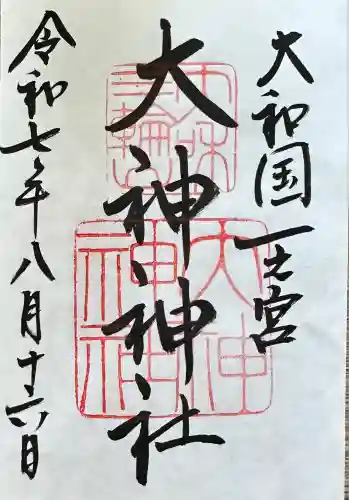 大和国一之宮
大神神社
令和七年八月十六日
三輪
大神神社